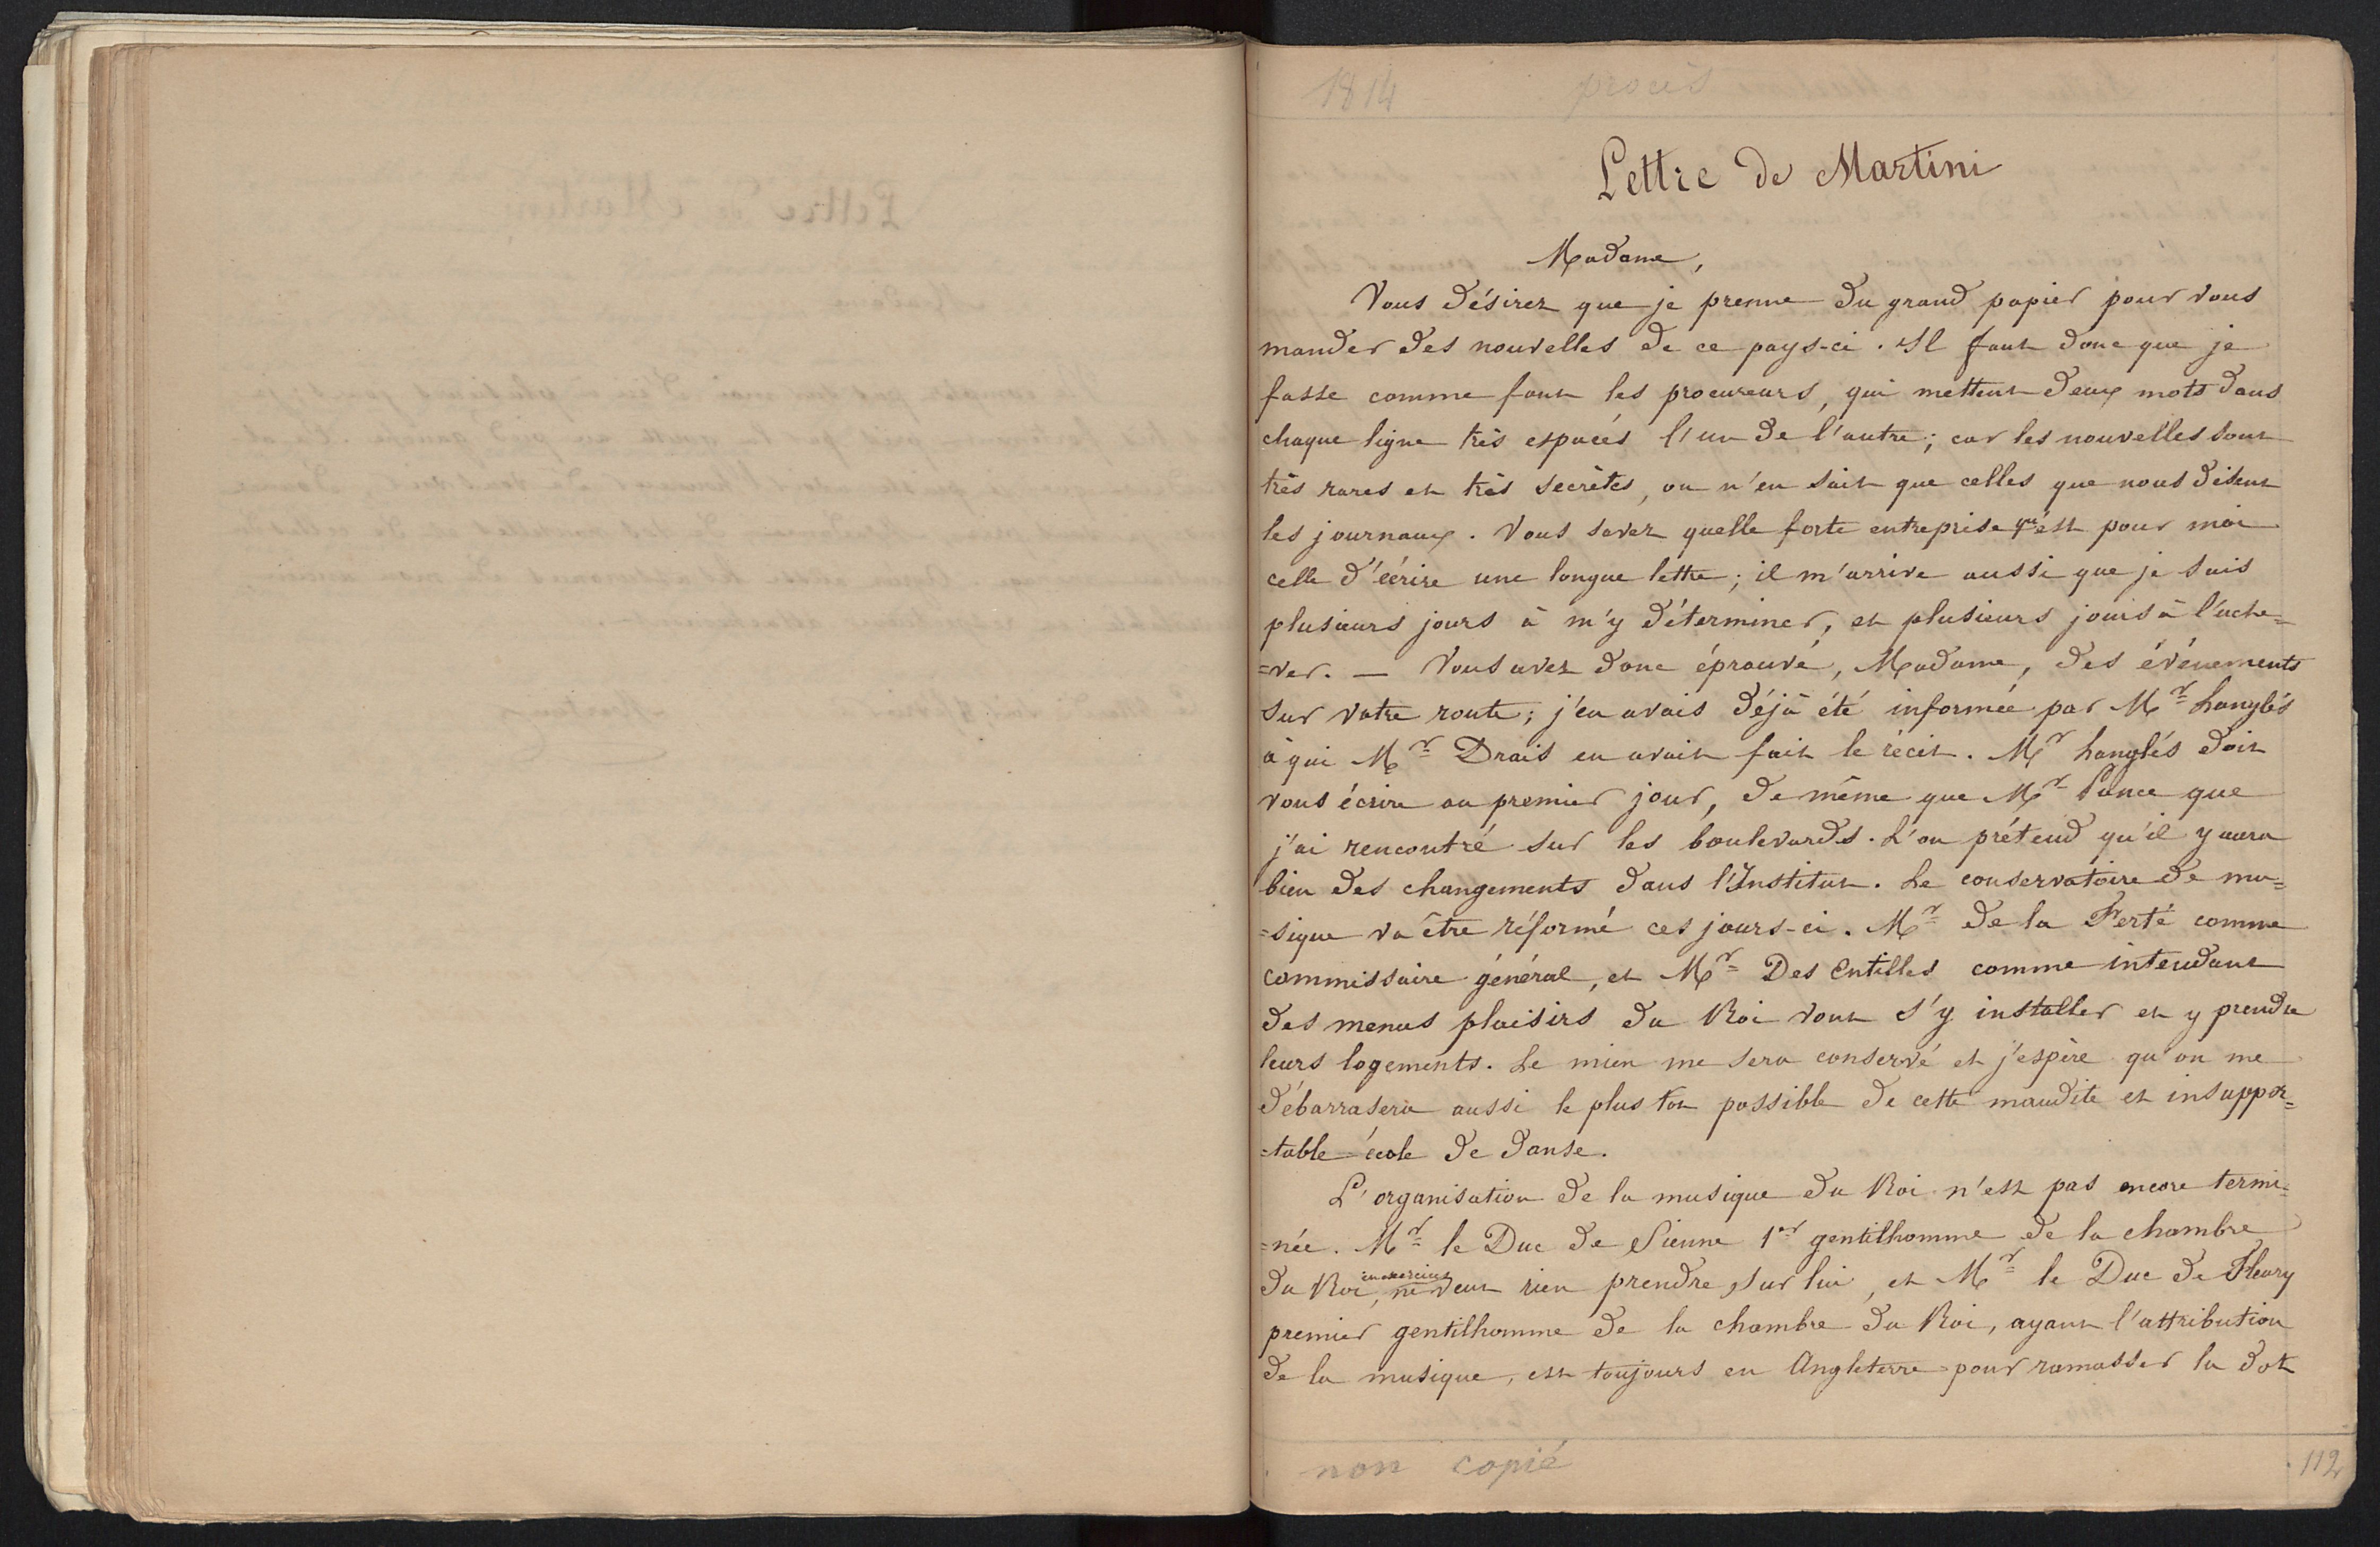 1814 procès
Lettre de Martini
Madame,
Vous désirez que je prenne du grand papier pour vous
mander des nouvelles de ce pays-ci. Il faut donc que je
fasse comme font les procureurs, qui mettent deux mots dans
chaque ligne très espacés l'un de l'autre; car les nouvelles sont
très rares et très secrètes, on n'en sait que celles que nous disent
les journaux. Vous savez quelle forte entreprise qu'est pour moi
celle d'écrire une longue lettre; il m'arrive aussi que je suis
plusieurs jours à m'y déterminer, et plusieurs jours à l'ache=
=ver. — Vous avez donc éprouvé, Madame, des événements
sur votre route; j'en avais déjà été informée par Mr Langlés
à qui Mr Drais en avait fait le récit. Mr Langlés doit
vous écrire au premier jour, de même que Mr Ponce que
j'ai rencontré sur les boulevards. L'on prétend qu'il y aura
bien des changements dans l'Institut. Le conservatoire de mu=
=sique va être réformé ces jours-ci. Mr de la Ferté comme
commissaire général, et Mr Des Entilles comme intendant
des menus plaisirs du Roi vont s'y installer et y prendre
leurs logements. Le mien me sera conservé et j'espère qu'on me
débarrasera aussi le plus tot possible de cette maudite et insuppor=
=table école de danse.
L'organisation de la musique du Roi n'est pas encore termi=
=née. Mr le Duc de Pienne 1er gentilhomme de la chambre
du Roi, en exercice ne veut rien prendre sur lui, et Mr le Duc de Fleury
premier gentilhomme de la chambre du Roi, ayant l'attribution
de la musique, est toujours en Angleterre pour ramasser la dot
non copié 112